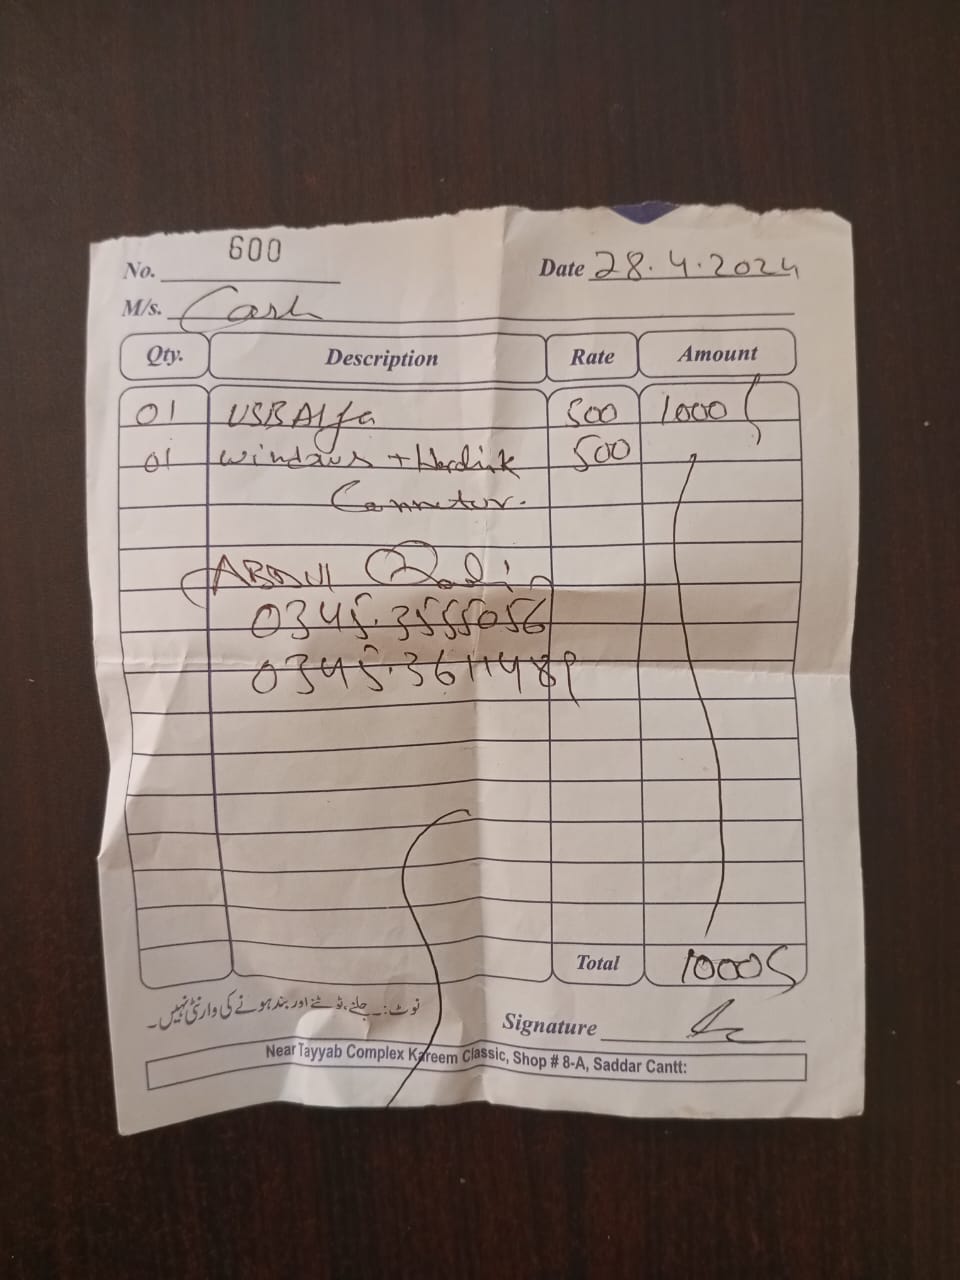 No. 600 Date 28.4.2024
M/s. Cash
Qty. Description Rate Amount
01 USB Alfa 500 1000
01 Windows + Hardisk 500
Connetor.
ABDUL
0345.3555056
0345.3611489
Total 1000
نوٹ:۔ جلنے، ٹوٹنے اور بند ہونے کی وارنٹی نہیں۔
Signature
Near Tayyab Complex Kareem Classic, Shop # 8-A, Saddar Cantt: